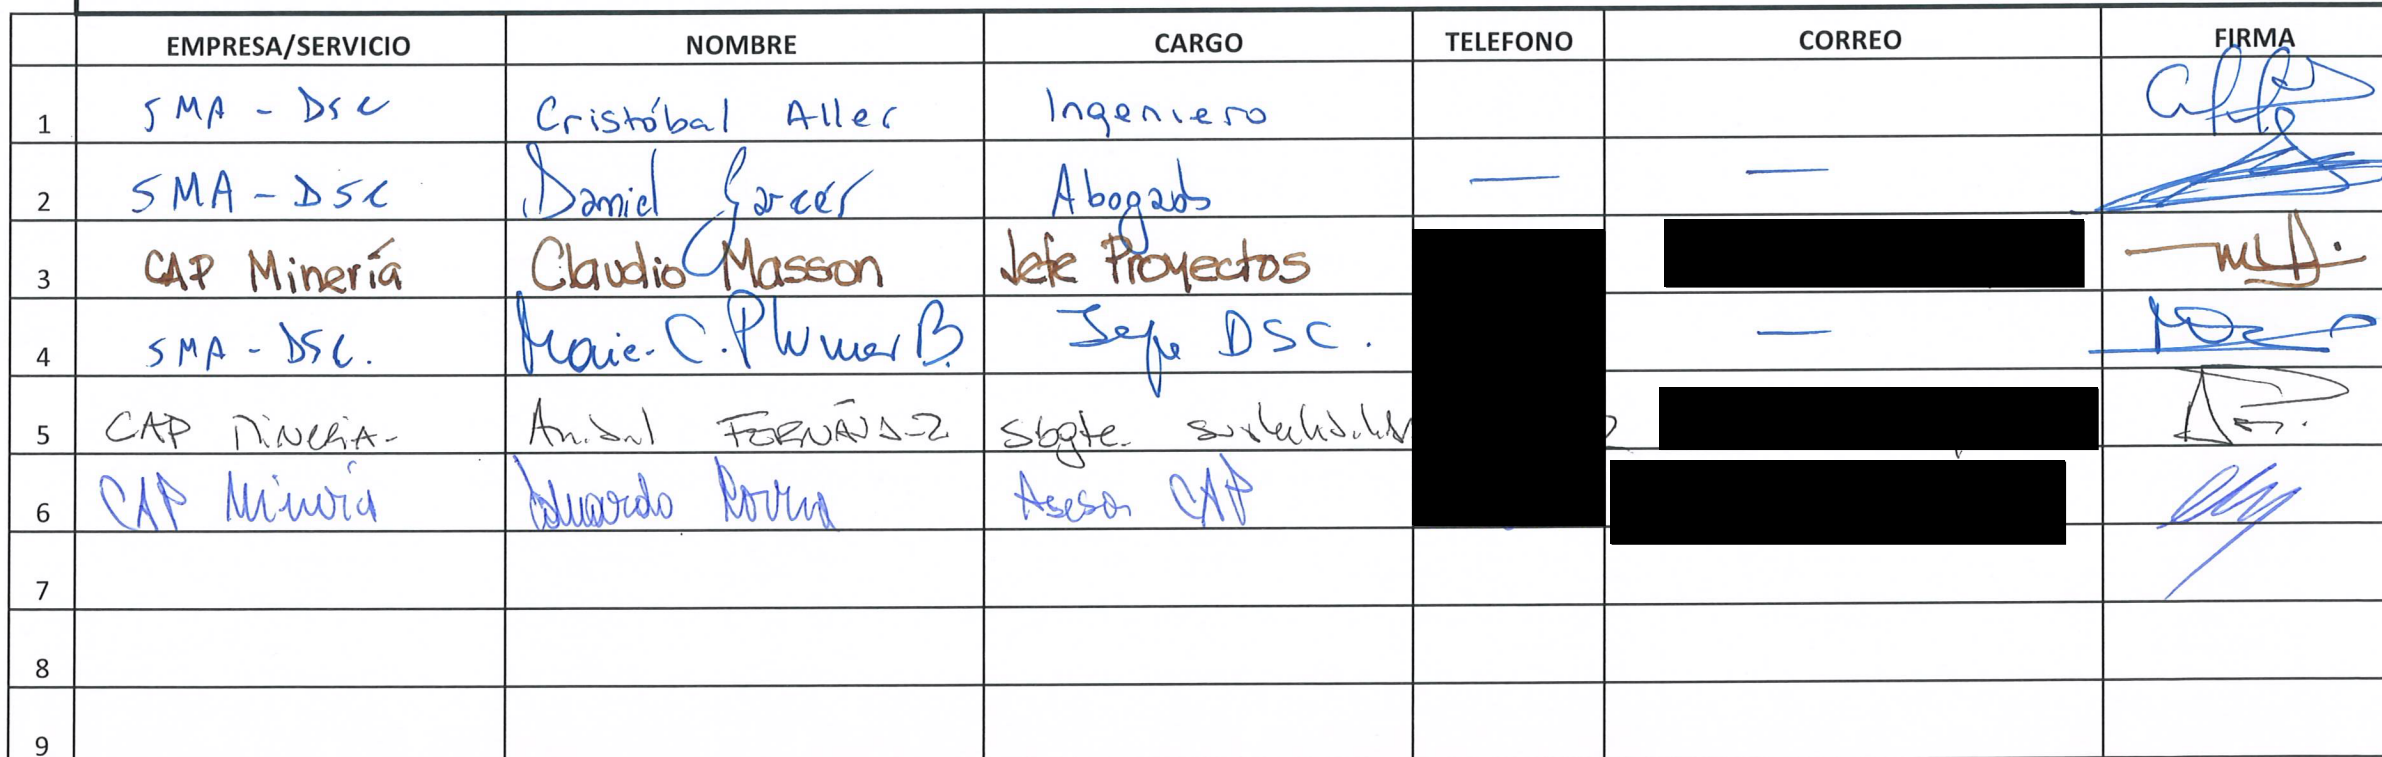 EMPRESA/SERVICIO NOMBRE CARGO TELEFONO CORREO FIRMA
1 SMA - DSC Cristóbal Aller Ingeniero
2 SMA - DSC Daniel Garcés Abogado — —
3 CAP Minería Claudio Masson Jefe Proyectos
4 SMA - DSC. Marie C. Plumer B. Jefe DSC. —
5 CAP MINERIA - Anibal FERNÁNDEZ Sbgte.
6 CAP Minería Eduardo Asesor CAP
7
8
9